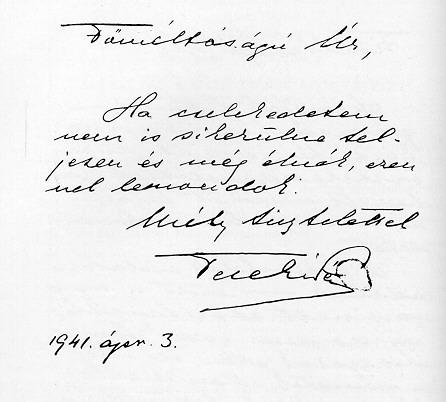 Főméltóságú Úr,
Ha cselekedetem
nem is sikerülne tel-
jesen és még élnék, ezen
nel lemondok.
Mély tisztelettel
Teleki Pál
1941. ápr. 3.